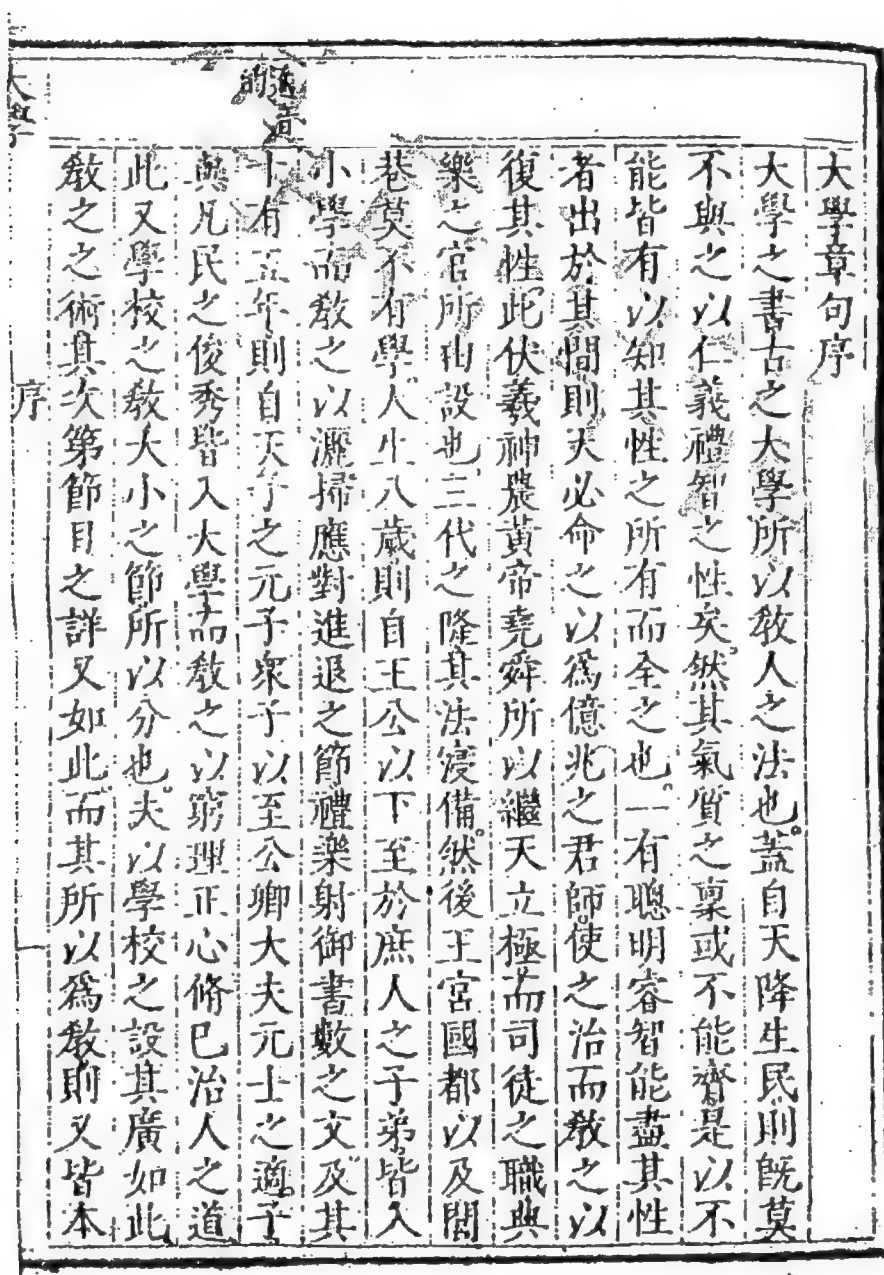 大學章句序
大學之書古之大學所以教人之法也。蓋自天降生民則旣莫
不與之以仁義禮智之性矣。然其氣質之稟或不能齊是以不
能皆有以知其性之所有而全之也。一有聰明睿智能盡其性
者出於其間則天必命之以爲億兆之君師。使之治而教之以
復其性。此伏羲神農黃帝堯舜所以繼天立極而司徒之職典
樂之官所由設也。三代之隆其法寖備。然後王宮國都以及閭
巷莫不有學。人生八歲則自王公以下至於庶人之子弟。皆入
小學而教之以灑掃應對進退之節。禮樂射御書數之文。及其
十有五年則自天子之元子衆子以至公卿大夫元士之適子
與凡民之俊秀皆入大學而教之以窮理正心脩己治人之道
此又學校之教大小之節所以分也。夫以學校之設其廣如此
教之之術其次第節目之詳又如此。而其所以爲教則又皆本
適音
的
大學
序
一